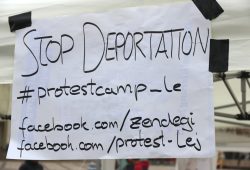 STOP DEPORTATION
#protestcamp_le
facebook.com/zendegi
facebook.com/protest.Lej